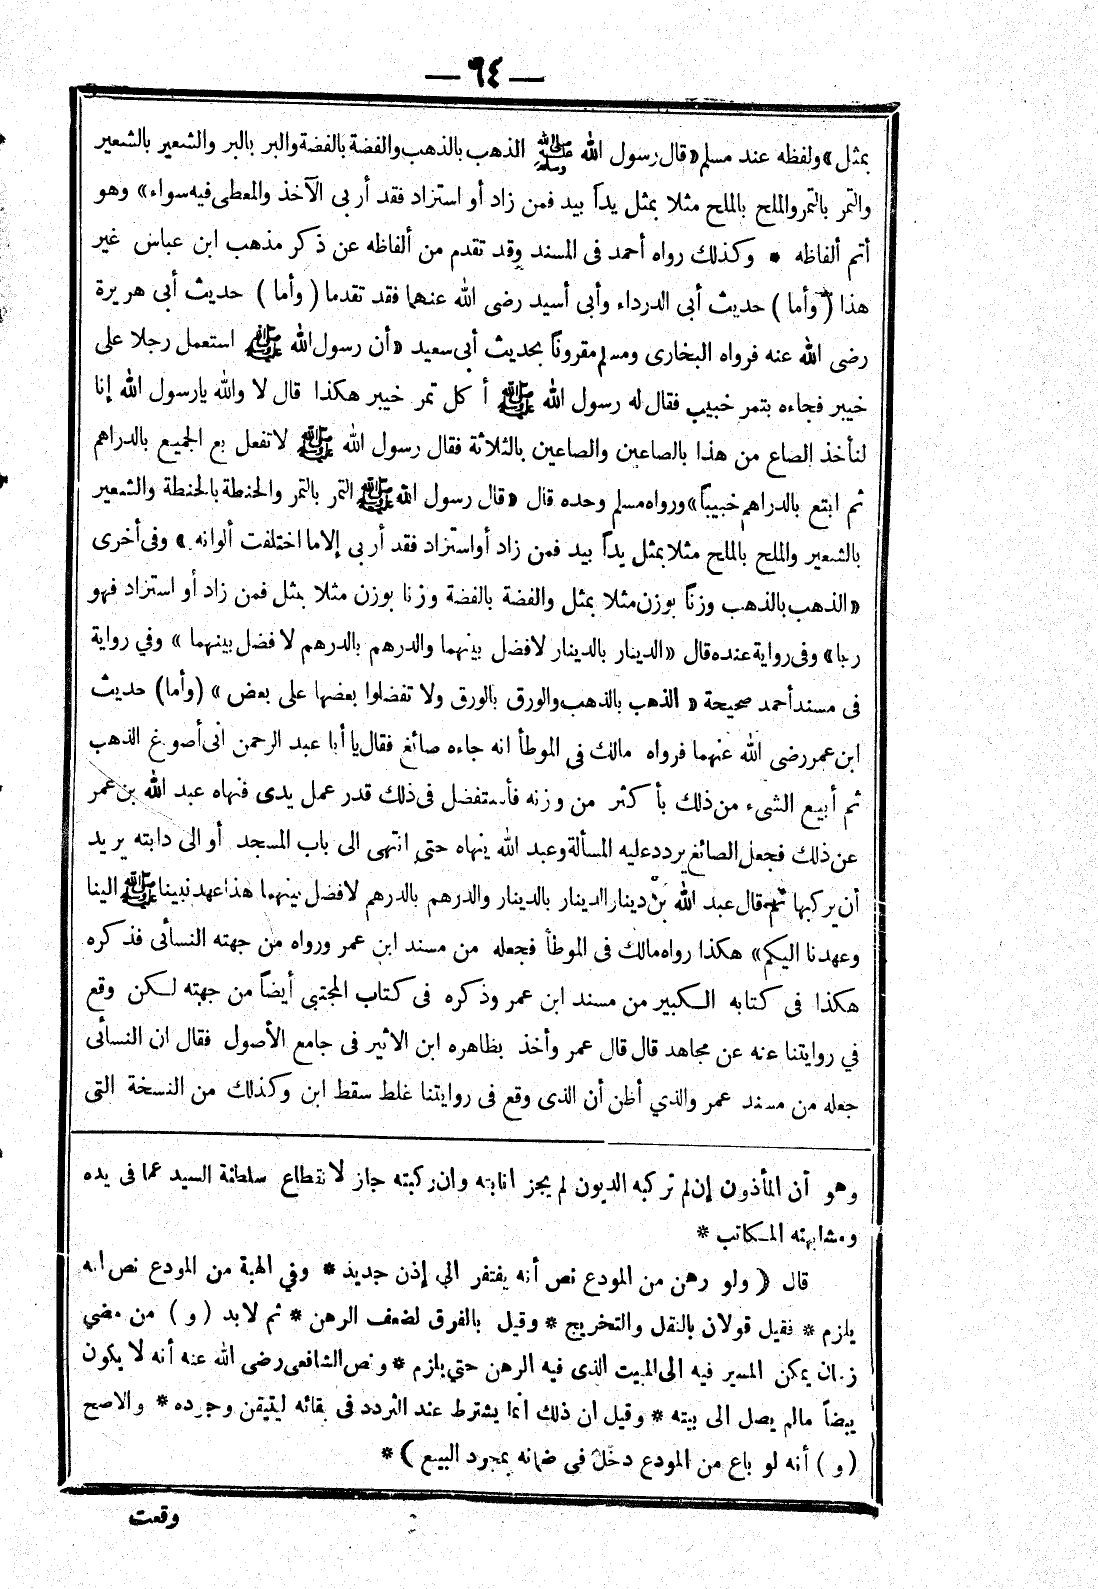 — ٦٤ —
بمثل » ولفظه عند مسلم « قال رسول الله ﷺ الذهب بالذهب والفضة بالفضة والبر بالبر والشعير بالشعير
والتمر بالتمر والملح بالملح مثلا بمثل يداً بيد فمن زاد أو استزاد فقد أربى الآخذ والمعطى فيه سواء » وهو
أتم ألفاظه * وكذلك رواه أحمد فى المسند وقد تقدم من ألفاظه عن ذكر مذهب ابن عباس غير
هذا ( وأما ) حديث أبى الدرداء وأبى أسيد رضى الله عنهما فقد تقدما ( وأما ) حديث أبى هريرة
رضى الله عنه فرواه البخارى ومسلم مقروناً بحديث أبى سعيد « أن رسول الله ﷺ استعمل رجلا على
خيبر فجاءه بتمر خبيب فقال له رسول الله ﷺ أ كل تمر خيبر هكذا قال لا والله يارسول الله إنا
لنأخذ الصاع من هذا بالصاعين والصاعين بالثلاثة فقال رسول الله ﷺ لاتفعل بع الجميع بالدراهم
ثم ابتع بالدراهم خبيباً » ورواه مسلم وحده قال « قال رسول الله ﷺ التمر بالتمر والحنطة بالحنطة والشعير
بالشعير والملح بالملح مثلا بمثل يداً بيد فمن زاد أواستزاد فقد أربى إلاما اختلفت ألوانه » وفى أخرى
« الذهب بالذهب وزناً بوزن مثلا بمثل والفضة بالفضة وزنا بوزن مثلا بمثل فمن زاد أو استزاد فهو
ربا » وفى رواية عنده قال « الدينار بالدينار لافضل بينهما والدرهم بالدرهم لا فضل بينهما » وفي رواية
فى مسند أحمد صحيحة « الذهب بالذهب والورق بالورق ولا تفضلوا بعضها على بعض » ( وأما ) حديث
ابن عمر رضى الله عنهما فرواه مالك فى الموطأ انه جاءه صائغ فقال يا أبا عبد الرحمن انى أصوغ الذهب
ثم أبيع الشىء من ذلك بأ كثر من وزنه فأستفضل فى ذلك قدر عمل يدى فنهاه عبد الله بن عمر
عن ذلك فجعل الصائغ يردد عليه المسألة وعبد الله ينهاه حتى انتهى الى باب المسجد أو الى دابته يريد
أن يركبها ثم قال عبد الله بن دينار الدينار بالدينار والدرهم بالدرهم لافضل بينهما هذا عهد نبينا ﷺ الينا
وعهدنا اليكم » هكذا رواه مالك فى الموطأ فجعله من مسند ابن عمر ورواه من جهته النسأئى فذكره
هكذا فى كتابه الكبير من مسند ابن عمر وذكره فى كتاب المجتبى أيضاً من جهته لكن وقع
في روايتنا عنه عن مجاهد قال قال عمر وأخذ بظاهره ابن الاثير فى جامع الأصول فقال ان النسأئى
جعله من مسند عمر والذي أظن أن الذى وقع فى روايتنا غلط سقط ابن وكذلك من النسخة التى
وهو أن المأذون إن لم تركبه الديون لم يجز انابته وان ركبته جاز لانقطاع سلطنة السيد عما فى يده
ومشابهته المكاتب *
قال ( ولو رهن من المودع نص أنه يفتقر الى إذن جديد * وفي الهبة من المودع نص أنه
يلزم * فقيل قولان بالنقل والتخريج * وقيل بالفرق لضعف الرهن * ثم لابد ( و ) من مضي
زمان يمكن المسير فيه الى المبيت الذى فيه الرهن حتى يلزم * ونص الشافعى رضى الله عنه أنه لا يكون
قبضاً مالم يصل الى بيته * وقيل ان ذلك انما يشترط عند التردد فى بقائه ليتيقن وجوده * والاصح
( و ) أنه لو باع من المودع دخل فى ضمانه بمجرد البيع ) *
وقعت